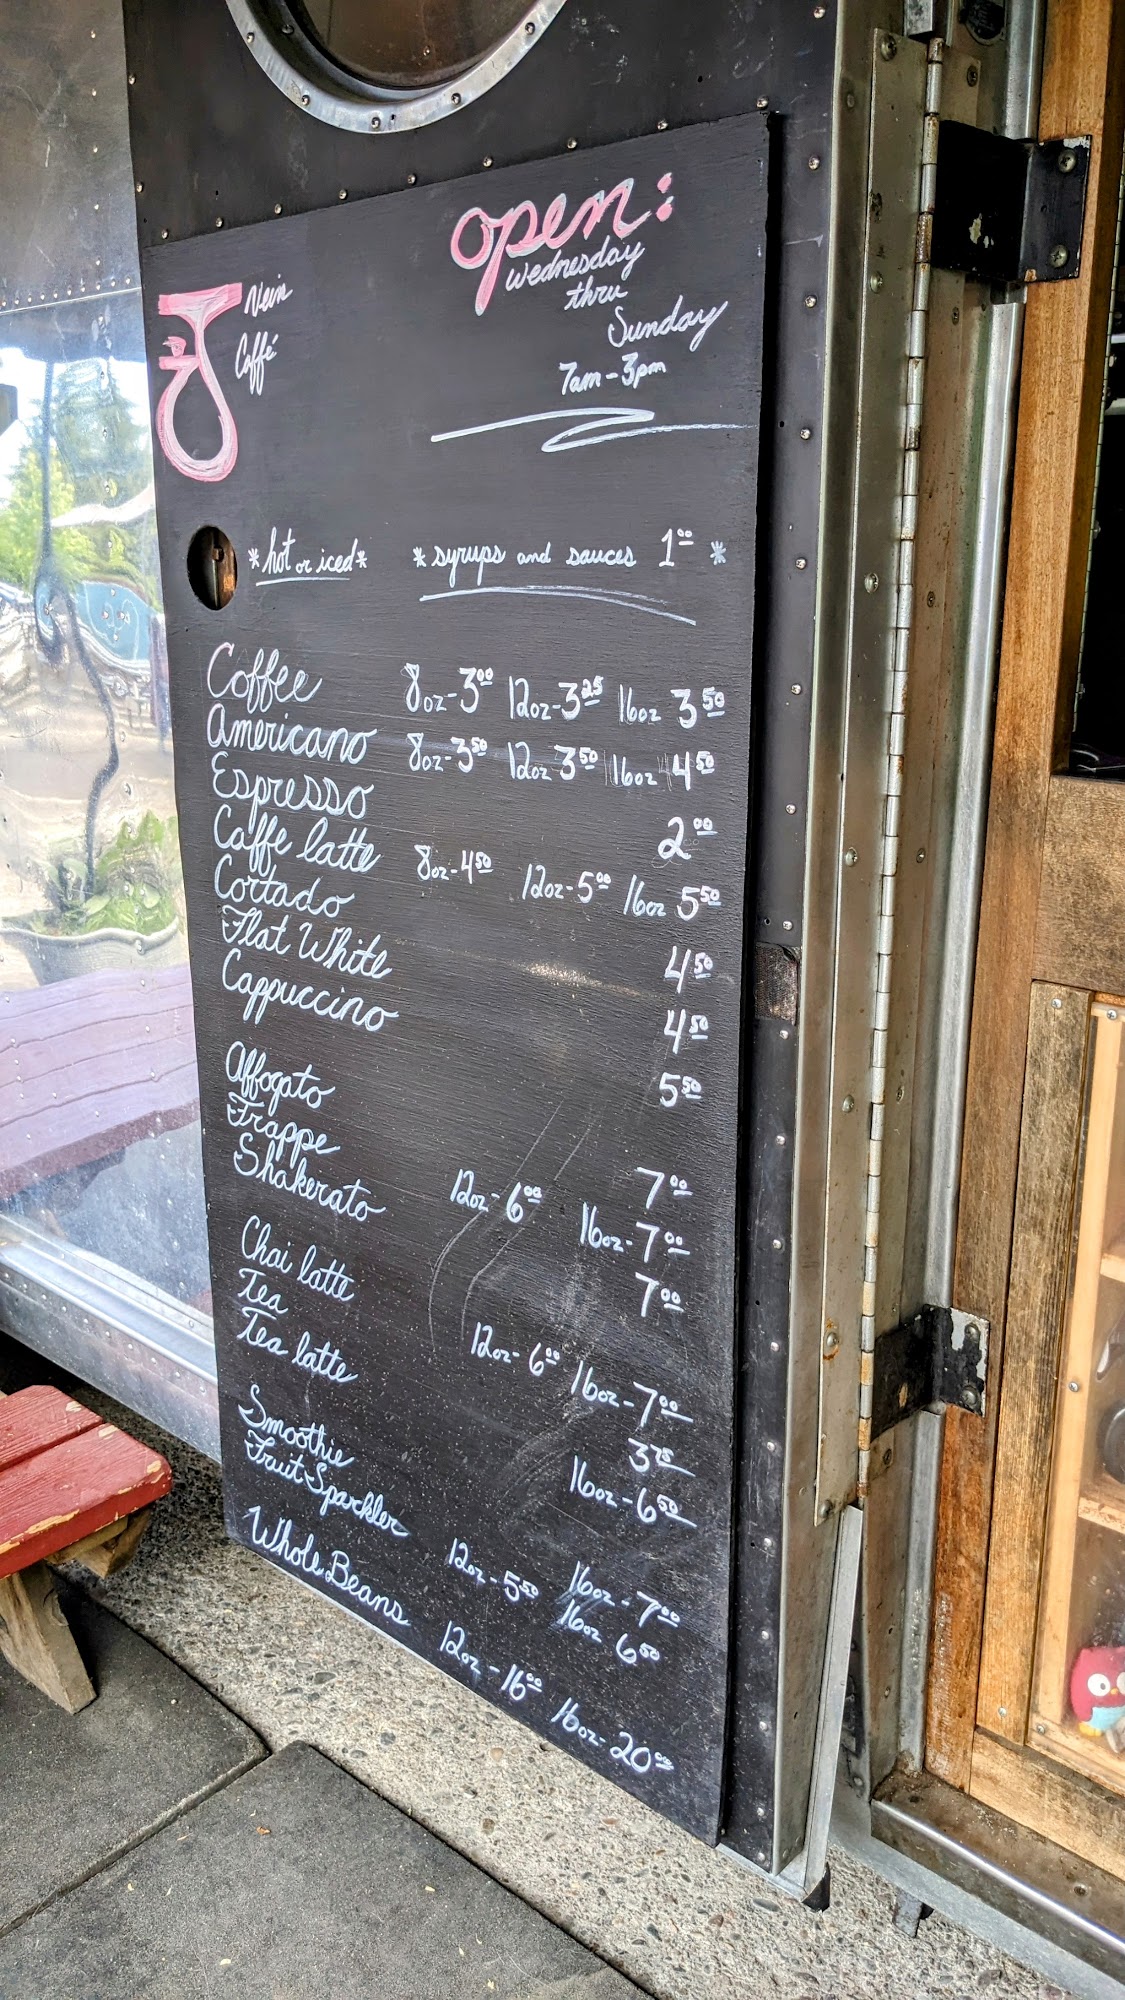 Open:
Wednesday
thru
Sunday
7am-3pm
Vein
Caffé
*hot or iced* *syrups and sauces 1.00 *
Coffee 8oz-3.00 12oz-3.25 16oz 3.50
Americano 8oz-3.50 12oz 3.50 16oz 4.50
Espresso 2.00
Caffe latte 8oz-4.50 12oz-5.00 16oz 5.50
Cortado 4.50
Flat White 4.50
Cappuccino 5.50
Affogato 7.00
Frappe 12oz-6.00 16oz-7.00
Shakerato 7.00
Chai latte 12oz-6.00 16oz-7.00
Tea 3.25
Tea latte 16oz-6.50
Smoothie 16oz-7.00
Fruit Sparkler 12oz-5.50 16oz 6.50
Whole Beans 12oz-16.00 16oz-20.00